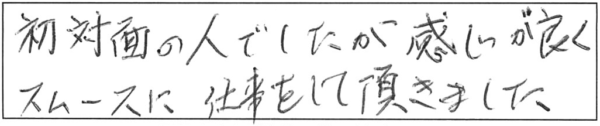 初対面の人でしたが感じが良く
スムースに仕事をして頂きました